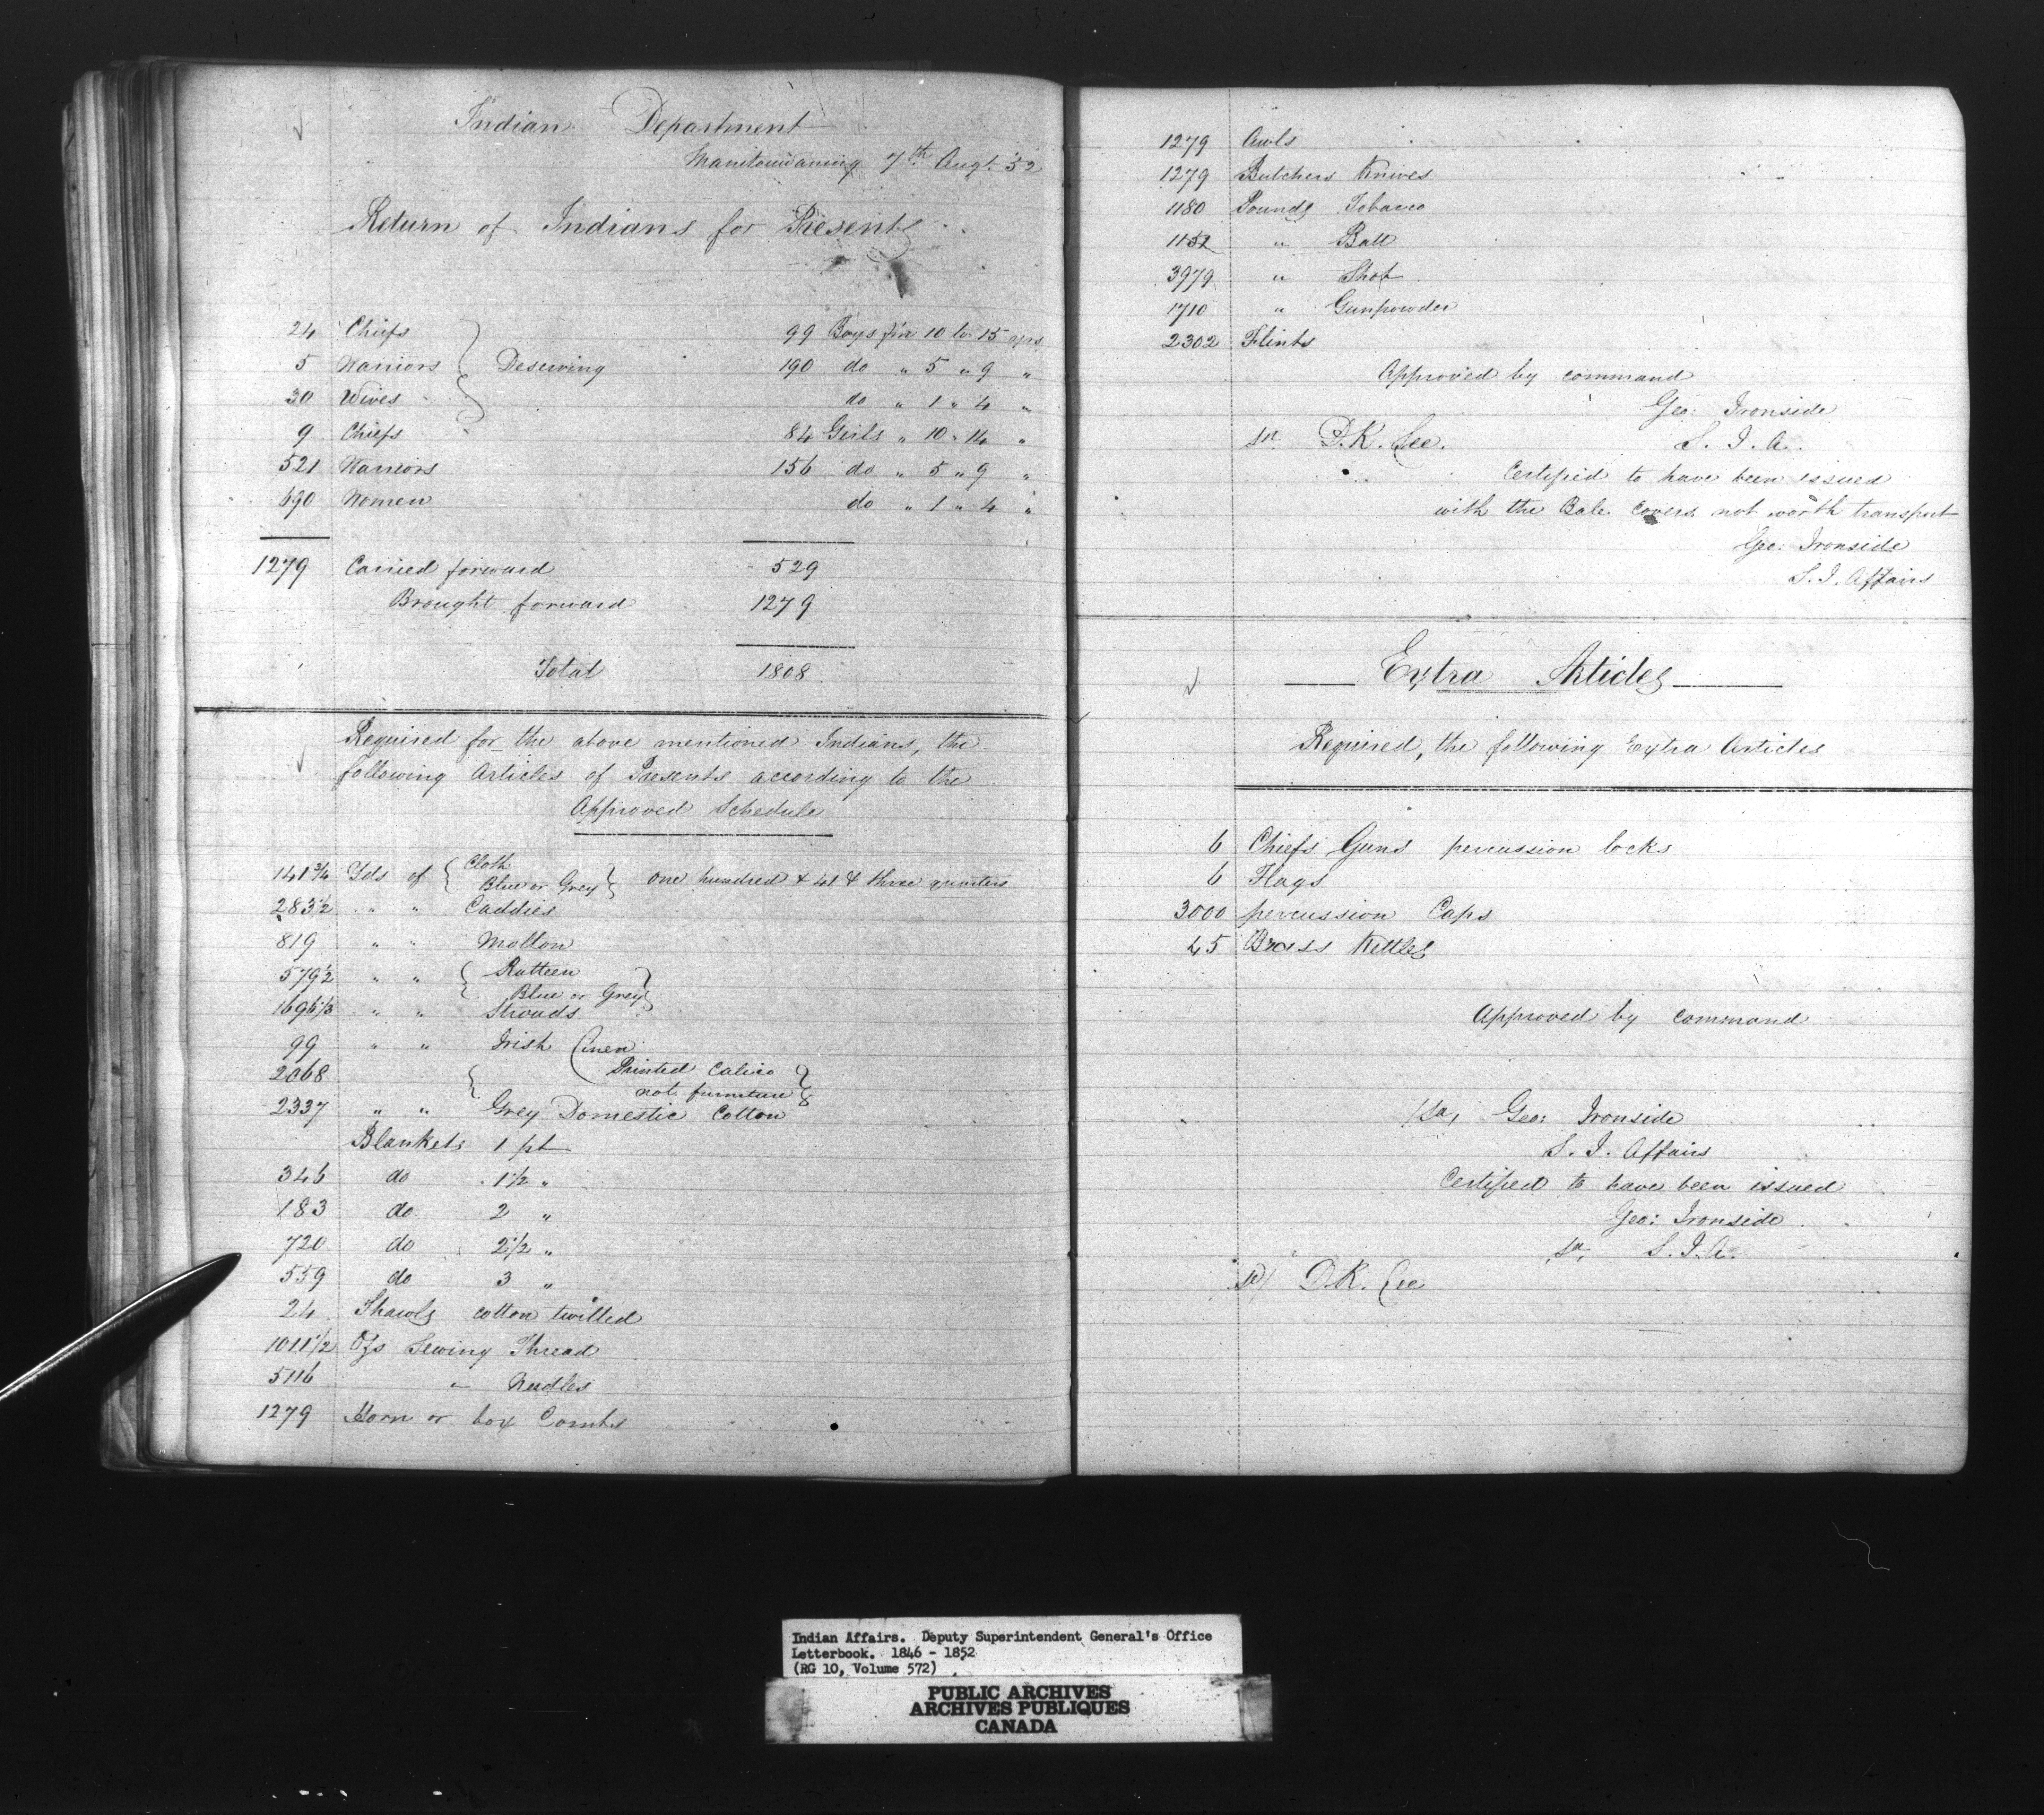 Indian Department
Manitowaning 7th Augt. '52
Return of Indians for Presents
24 Chiefs } Deserving
5 Warriors
30 Wives
9 Chiefs
521 Warriors
690 Women
1279 Carried forward
99 Boys fm 10 to 15 yrs
190 do " 5 " 9 "
do " 1 " 4 "
84 Girls " 10 " 14 "
156 do " 5 " 9 "
do " 1 " 4 "
529
Brought forward 1279
Total 1808
Required for the above mentioned Indians, the
following Articles of Presents according to the
Approved Schedule
141 3/4 Yds of { Cloth
Blue or Grey } One hundred & 41 & three quarters
283 1/2 " " Caddies
819 " " Molton
579 1/2 " " { Ratteen
Blue or Grey }
1696 1/3 " " Strouds
99 " " Irish Linen
2068 { Printed Calico
not furniture }
2337 " " Grey Domestic Cotton
Blankets 1 pt
346 do 1 1/2 "
183 do 2 "
720 do 2 1/2 "
559 do 3 "
24 Shawls cotton twilled
1011 1/2 Ozs Sewing Thread
5116 " Needles
1279 Horn or box Combs
1279 Awls
1279 Butchers Knives
1180 Pounds Tobacco
1152 " Ball
3979 " Shot
1710 " Gunpowder
2302 Flints
Approved by command
Geo: Ironside
Sd D.K. Lee. S. I. A.
Certified to have been issued
with the Bale covers not worth transport
Geo: Ironside
S. I. Affairs
Extra Articles
Required, the following Extra Articles
6 Chiefs Guns percussion locks
6 Flags
3000 percussion Caps
45 Brass Kettles
Approved by Command
/Sd/ Geo: Ironside
S. I. Affairs
Certified to have been issued
Geo: Ironside
Sd, S. I. A.
Sd/ D.K. Lee
Indian Affairs. Deputy Superintendent General's Office
Letterbook. 1846 - 1852
(RG 10, Volume 572)
PUBLIC ARCHIVES
ARCHIVES PUBLIQUES
CANADA